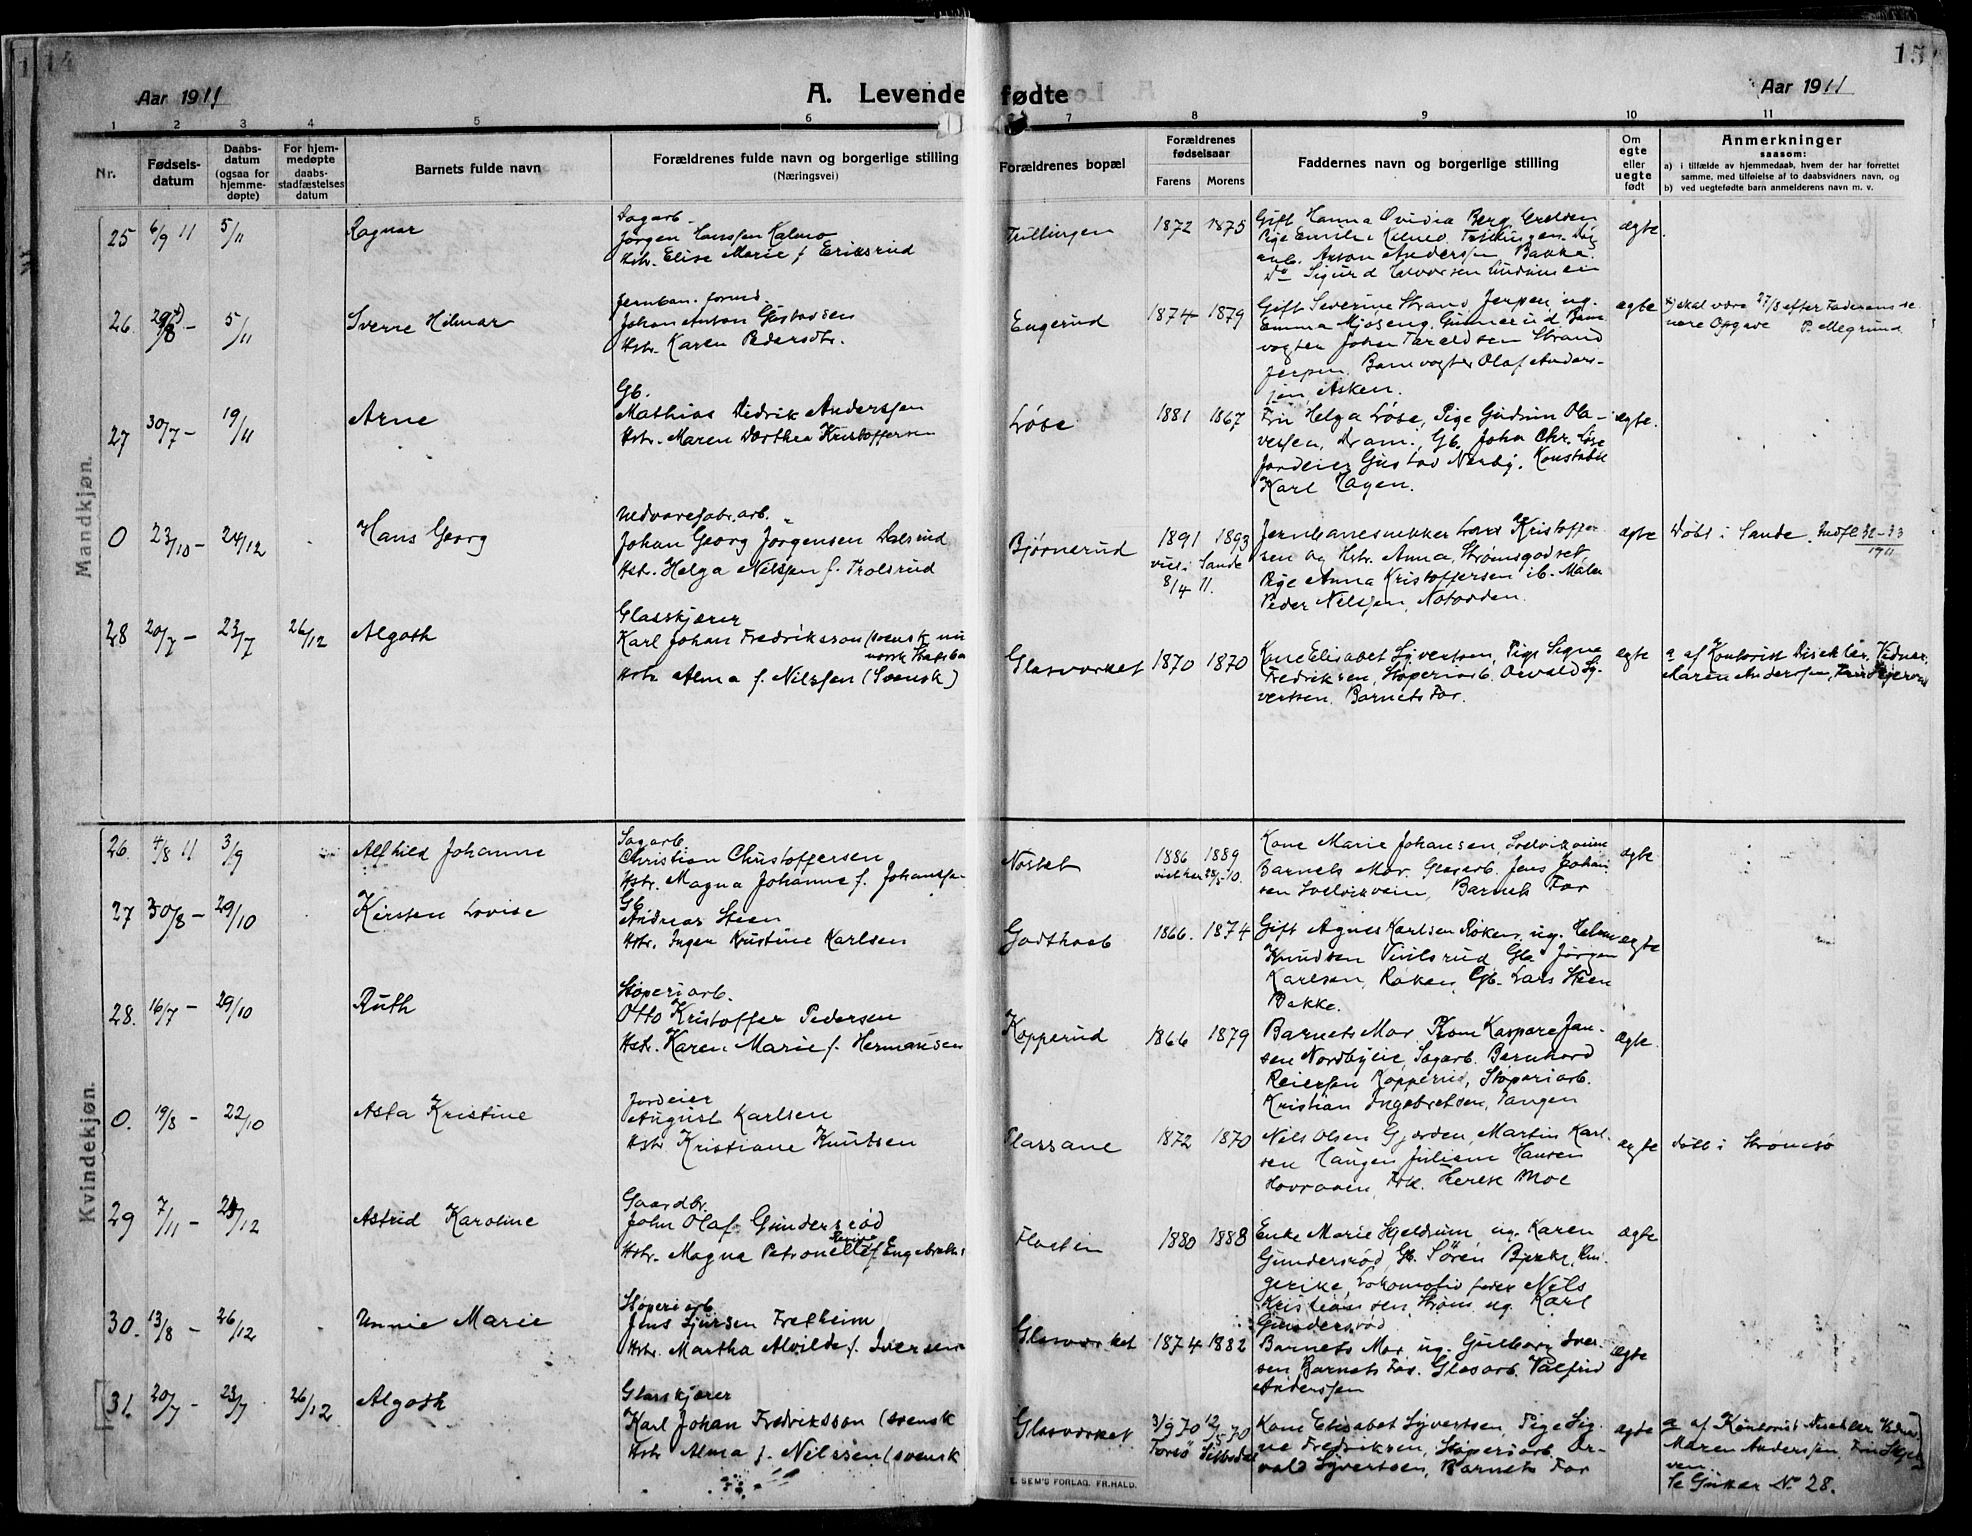 14
Aar 1911
A. Levende fødte
Aar 1911
15
1 2 3 4 5 6 7 8 9 10 11
Nr.
Fødsels-
datum
Daabs-
datum
(ogsaa for
hjemme-
døpte)
For hjem-
medøpte
daabs-
stadfæstelses
datum
Barnets fulde navn
Forældrenes fulde navn og borgerlige stilling
(Næringsvei)
Forældrenes bopæl
Forældrenes
fødselsaar
Farens Morens
Faddernes navn og borgerlige stilling
Om
egte
eller
uegte
født
Anmerkninger
saasom:
a) i tilfælde av hjemmedaab, hvem der har forrettet
samme, med tilføielse af to daabsvidners navn, og
b) ved uegtefødte barn anmelderens navn m. v.
Mandkjøn.
25 6/9 11 5/11 Ragnar
Jørgen Hanssen Kalmo
Hstr. Elise Marie f. Eriksrud
1872 1875
Gift Hanna Ovidia Berg
Anton Anderssen Bakke.
ægte.
26. 5/11 Sverre Hilmar
Johan Anton Gustavsen
Hstr. Karen Pedersdtr.
Engerud
1874 - 1879
Gift Severine Strand Jerpen ug.
Emma Mjøseng, Gunnerud. Bane
vogter Johan Taraldsen Strand
Jerpen. Banevogter Olaf Anders-
sen, Asken.
ægte
skal være 27/8 efter Faderens se
nere Opgave P. Ellegrund
27 30/7 - 19/11 Arne
Gb.
Mathias Didrik Anderssen
Hstr. Maren Dorthea Kristoffersen
Løse
1881 1867
Fru Helga Løse, Pige Gudrun Ola-
versen, Dram., Gb. Johan Chr. Løse
Jordeier Gustav Nærby. Konstabel
Karl Hagen.
ægte.
0 23/10 - 24/12 Hans Georg
Johan Georg Jørgensen Dalsrud
Hstr. Helga Nilssen f. Trolsrud
Bjørnerud
1891 1893
viet i Sande
8/4 11.
Jernbanesnekker Lars Kristoffer
sen og Hstr. Anna, Strømsgodset,
Pige Anna Kristoffersen ib. Maler
Peder Nelssen, Notodden.
ægte
Døbt i Sande.
28 20/7 - 23/7 26/12 Algoth
Glasskjærer
Karl Johan Fredriksson (svensk nu
norsk Statsbo
Hstr Alma f. Nilssen (Svensk)
Glasværket
1870 1870
Kone Elisabet Syvertsen, Pige Signe
Fredriksen, Støperiarb. Osvald Sy-
vertsen. Barnets Far.
egte
a af Kontorist Dischler. Vidner,
Maren Anderssen, Fru Skjerven
Kvindekjøn.
26. 4/8 11 3/9 Alfhild Johanne
Sagarb.
Christian Christoffersen
Hstr. Magna Johanne f. Johanssen
Nostet
1886 1889
Kone Marie Johansen, Svelvikveien
Barnets Mor, Glasarb. Jens Johan
sen Svelvikveien, Barnets Far
ægte
27 30/8 - 29/10 Kirsten Lovise
Gb.
Andreas Steen
Hstr. Inger Kristine Karlsen
Godthaab
1866. 1874
Gift Agnes Karlsen Røken, ug. Helene
Knudsen Jørgen
Karlsen, Røken, Gb. Lars Steen
Bakke.
ægte
28. 16/7 - 29/10 Ruth
Støperiarb.
Otto Kristoffer Pedersen
Hstr. Karen Marie f. Hermansen
Kopperud
1866 1879
Barnets Mor Kone Kaspara Jan-
sen Nordbyeie, Sagarb. Bernhard
Reiersen Kopperud, Støperiarb.
Kristian Ingebretsen, Tangen
ægte.
0. 19/8 - 22/10 Asta Kristine
Jordeier
August Karlsen
Hstr Kristiane Knutsen
Plassane
1872 1870
Nils Olsen Gjerden, Martin Karl-
sen Haugen Juliane Hansen
Frk. Therese Moe
ægte
døbt i Strømsø
29 7/11 - Astrid Karoline
Gaardbr.
John Olaf Gundersrød
Hstr. Magna Petronelle f. Engebrets
Flaatin
1880 1888
Enke Marie Hjeldrum, ug. Karen
Gundersrød, Gb. Søren Bjerke, Rin-
gerike, Lokomotivfører Nils
Kristiansen, Strøm, ug. Karl
Gundersrød
ægte
30. 13/8 - 26/12 Unnie Marie
Støperiarb.
Jens Sjursen Fretheim
Hstr. Martha Alvilde f. Iversen
Glasværket
1874 1882
Barnets Mor, ug. Gulborg Iver-
sen, Barnets Far. Glasarb. Valfrid
Anderssen
ægte
31. 20/7 - 23/7 26/12 Algoth
Glasskjærer
Karl Johan Fredriksson (svensk
Hstr Alma f. Nilssen (svensk
Glasværket
3/9 70 12/5 70
Kone Elisabet Syvertsen, Pige Sig-
ne Fredriksen, Støperiarb. Os-
vald Syvertsen, Barnets Far
egte
a af Kontorist Dischler Vidner
Maren Andersen, Fru Skjer
ven
Se Gutter No 28.
E. SEM'S FORLAG. FR.HALD.